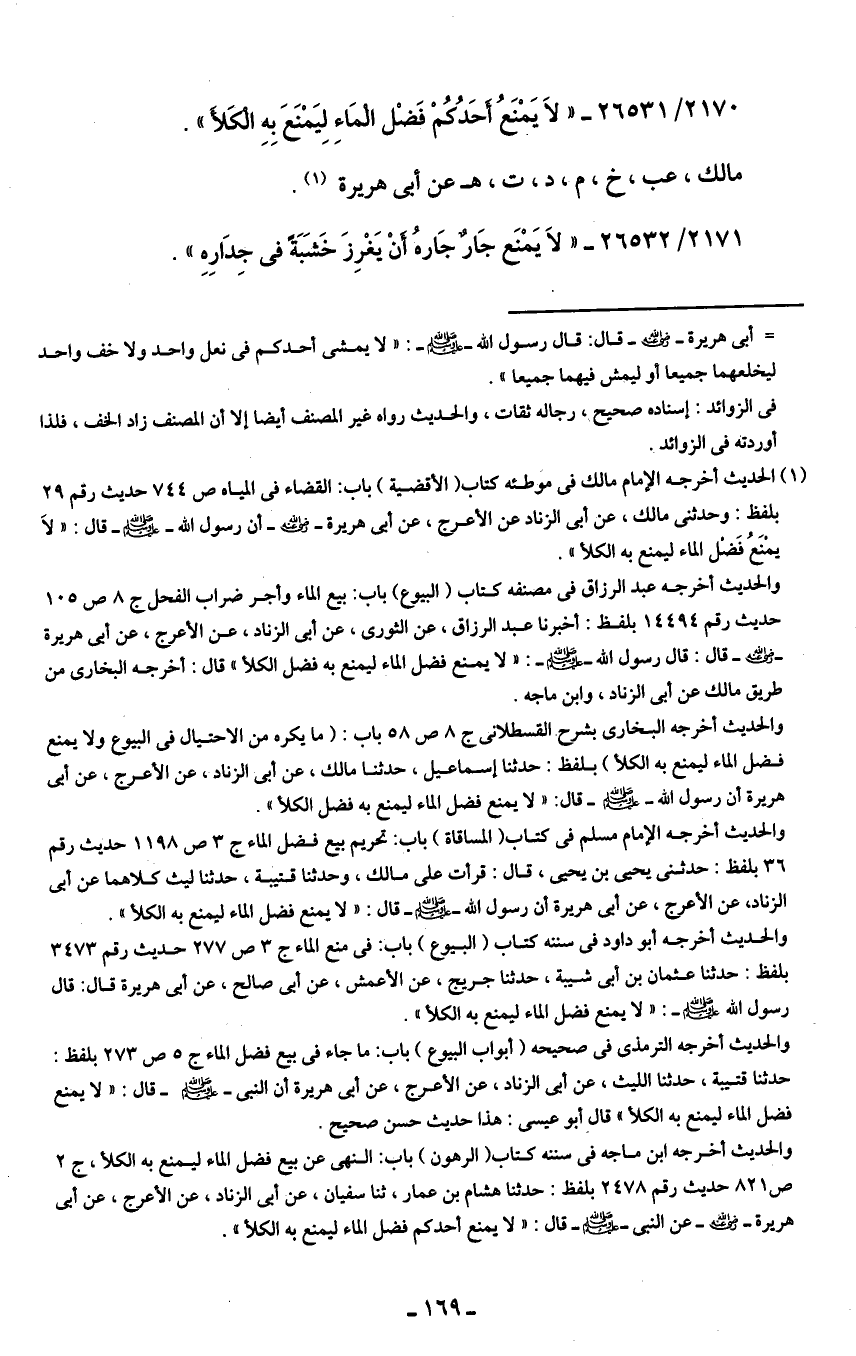 ٢١٧٠/ ٢٦٥٣١ ـ « لاَ يَمْنَعُ أَحَدُكُمْ فَضْل الْمَاءِ لِيَمْنَعَ بِهِ الْكَلأَ » .
مالك ، عب ، خ ، م ، د ، ت ، هـ عن أبى هريرة (١) .
٢١٧١/ ٢٦٥٣٢ ـ « لاَ يَمْنَع جَارٌ جَارهُ أَنْ يَغْرِزَ خَشَبَةً فى جِدَارِهِ » .
= أبى هريرة ـ رضي الله عنه ـ قال: قال رسول الله ـ ﷺ ـ : « لا يمشى أحدكم فى نعل واحد ولا خف واحد
ليخلعهما جميعا أو ليمش فيهما جميعا » .
فى الزوائد : إسناده صحيح ، رجاله ثقات ، والحديث رواه غير المصنف أيضا إلا أن المصنف زاد الخف ، فلذا
أوردته فى الزوائد .
(١) الحديث أخرجه الإمام مالك فى موطئه كتاب( الأقضية ) باب: القضاء فى المياه ص ٧٤٤ حديث رقم ٢٩
بلفظ : وحدثنى مالك ، عن أبى الزناد عن الأعرج ، عن أبى هريرة ـ رضي الله عنه ـ أن رسول الله ـ ﷺ ـ قال : « لاَ
يمْنَعُ فَضْل الماء ليمنع به الكلأ » .
والحديث أخرجه عبد الرزاق فى مصنفه كتاب ( البيوع) باب: بيع الماء وأجر ضراب الفحل ج ٨ ص ١٠٥
حديث رقم ١٤٤٩٤ بلفظ : أخبرنا عبد الرزاق ، عن الثورى ، عن أبى الزناد ، عن الأعرج ، عن أبى هريرة
ـ رضي الله عنه ـ قال : قال رسول الله ـ ﷺ ـ : « لا يمنع فضل الماء ليمنع به فضل الكلأ » قال : أخرجه البخارى من
طريق مالك عن أبى الزناد ، وابن ماجه .
والحديث أخرجه البخارى بشرح القسطلانى ج ٨ ص ٥٨ باب : ( ما يكره من الاحتيال فى البيوع ولا يمنع
فضل الماء ليمنع به الكلأ ) بلفظ : حدثنا إسماعيل ، حدثنا مالك ، عن أبى الزناد ، عن الأعرج ، عن أبى
هريرة أن رسول الله ـ ﷺ ـ قال: « لا يمنع فضل الماء ليمنع به فضل الكلأ » .
والحديث أخرجه الإمام مسلم فى كتاب( المساقاة ) باب: تحريم بيع فضل الماء ج ٣ ص ١١٩٨ حديث رقم
٣٦ بلفظ : حدثنى يحيى بن يحيى ، قال : قرأت على مالك ، وحدثنا قتيبة ، حدثنا ليث كلاهما عن أبى
الزناد، عن الأعرج ، عن أبى هريرة أن رسول الله ـ ﷺ ـ قال : « لا يمنع فضل الماء ليمنع به الكلأ » .
والحديث أخرجه أبو داود فى سننه كتاب ( البيوع ) باب: فى منع الماء ج ٣ ص ٢٧٧ حديث رقم ٣٤٧٣
بلفظ : حدثنا عثمان بن أبى شيبة ، حدثنا جريج ، عن الأعمش ، عن أبى صالح ، عن أبى هريرة قال: قال
رسول الله ﷺ ـ : « لا يمنع فضل الماء ليمنع به الكلأ » .
والحديث أخرجه الترمذى فى صحيحه ( أبواب البيوع ) باب: ما جاء فى بيع فضل الماء ج ٥ ص ٢٧٣ بلفظ :
حدثنا قتيبة ، حدثنا الليث ، عن أبى الزناد ، عن الأعرج ، عن أبى هريرة أن النبى ـ ﷺ ـ قال : « لا يمنع
فضل الماء ليمنع به الكلأ » قال أبو عيسى : هذا حديث حسن صحيح .
والحديث أخرجه ابن ماجه فى سننه كتاب( الرهون ) باب: النهى عن بيع فضل الماء ليمنع به الكلأ ، ج ٢
ص٨٢١ حديث رقم ٢٤٧٨ بلفظ : حدثنا هشام بن عمار ، ثنا سفيان ، عن أبى الزناد ، عن الأعرج ، عن أبى
هريرة ـ رضي الله عنه ـ عن النبى ـ ﷺ ـ قال : « لا يمنع أحدكم فضل الماء ليمنع به الكلأ » .
ـ ١٦٩ ـ